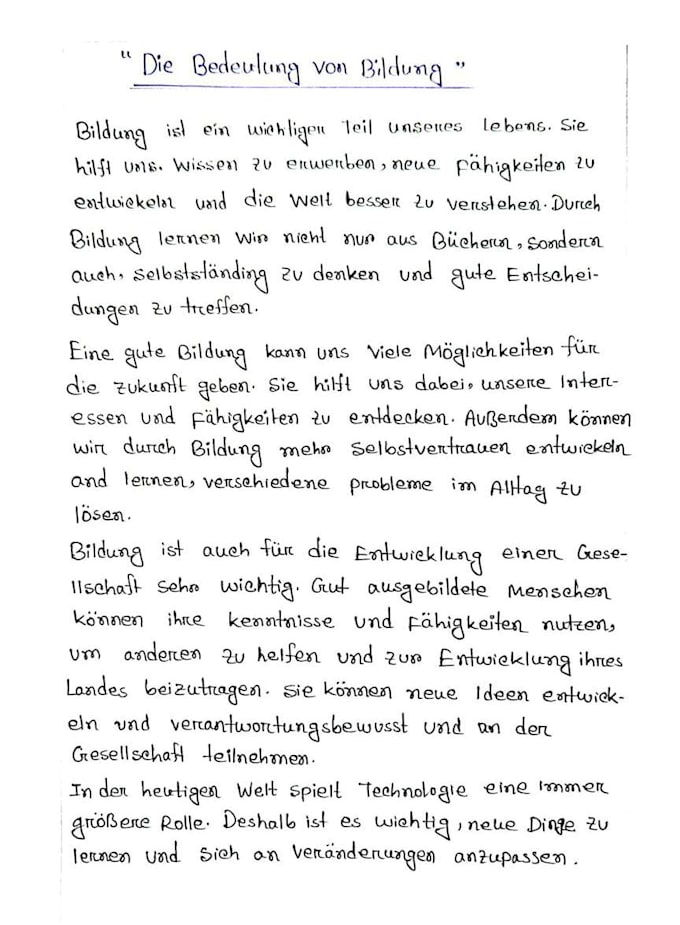 " Die Bedeutung von Bildung "
Bildung ist ein wichtiger Teil unseres Lebens. Sie
hilft uns. Wissen zu erwerben, neue Fähigkeiten zu
entwickeln und die Welt besser zu verstehen. Durch
Bildung lernen wir nicht nur aus Büchern, sondern
auch, selbstständing zu denken und gute Entschei-
dungen zu treffen.
Eine gute Bildung kann uns viele Möglichkeiten für
die Zukunft geben. Sie hilft uns dabei, unsere Inter-
essen und Fähigkeiten zu entdecken. Außerdem können
wir durch Bildung mehr Selbstvertrauen entwickeln
and lernen, verschiedene probleme im Alltag zu
lösen.
Bildung ist auch für die Entwicklung einer Gese-
llschaft sehr wichtig. Gut ausgebildete Menschen
können ihre kenntnisse und Fähigkeiten nutzen,
um anderen zu helfen und zur Entwicklung ihres
Landes beizutragen. Sie können neue Ideen entwick-
eln und verantwortungsbewusst und an der
Gesellschaft teilnehmen.
In der heutigen Welt spielt Technologie eine immer
größere Rolle. Deshalb ist es wichtig, neue Dinge zu
lernen und sich an Veränderungen anzupassen.